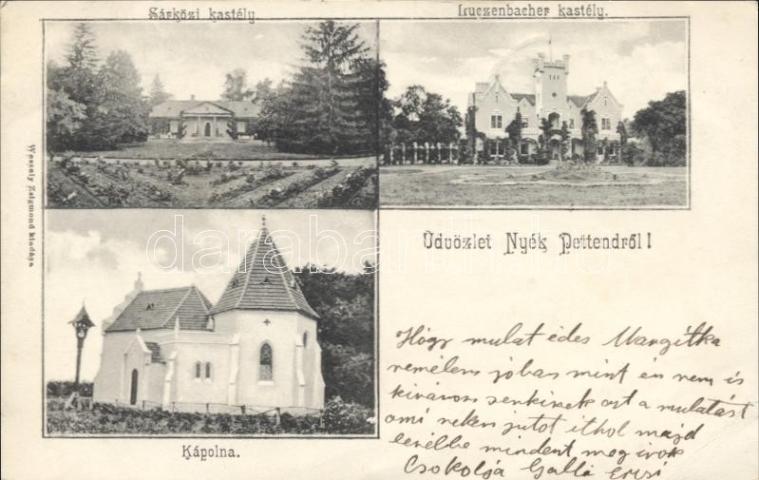 Sárközi kastély.
Luczenbacher kastély.
Wessely Zsigmond kiadása
Üdvözlet Nyék Pettendről!
Kápolna.
Hógy mulat édes Margitka
remélem jóban mint én nem is
kivánom senkinek azt a mulatást
ami nekem jutot ithol majd
levélbe mindent meg irok
Csokolja Galli Erzsi
darabanth.hu